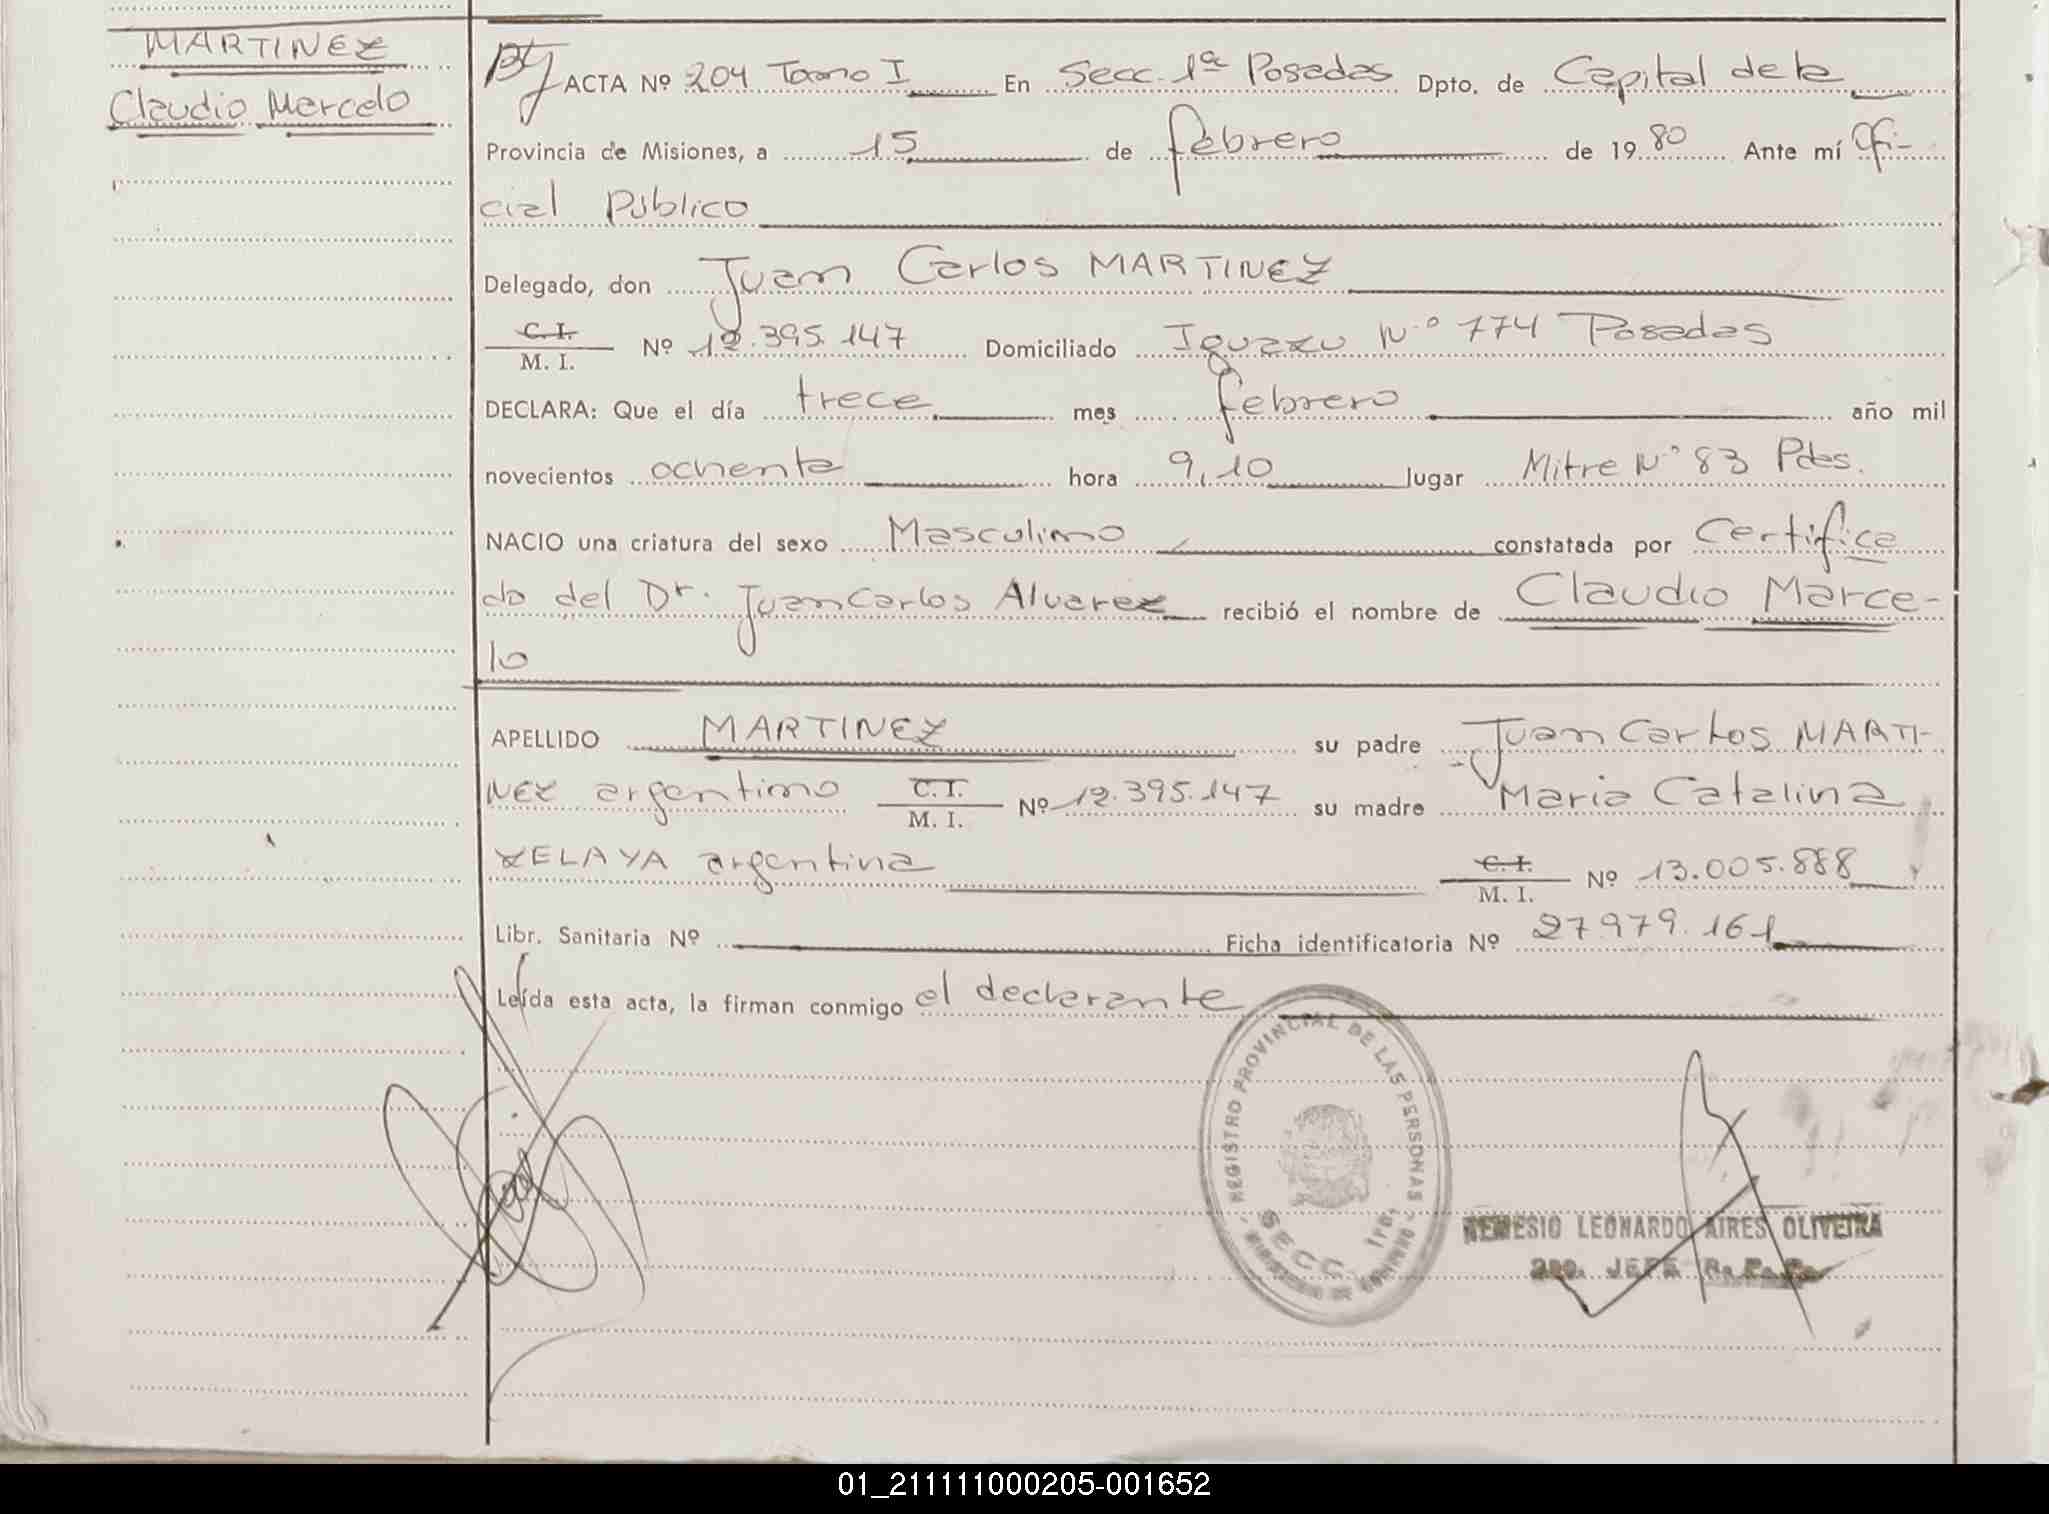 MARTINEZ
Claudio Marcelo
ACTA Nº 204 Tomo I En Secc. 1ª Posadas Dpto. de Capital de la
Provincia de Misiones, a 15 de febrero de 1980 Ante mí Ofi-
cial Público
Delegado, don Juan Carlos MARTINEZ
C. I.
M. I. Nº 12.395.147 Domiciliado Iguazu Nº 774 Posadas
DECLARA: Que el día trece mes febrero año mil
novecientos ochenta hora 9,10 lugar Mitre Nº 83 Pdas.
NACIO una criatura del sexo Masculino constatada por Certifica
do del Dr. Juan Carlos Alvarez recibió el nombre de Claudio Marce-
lo
APELLIDO MARTINEZ su padre Juan Carlos MARTI-
NEZ argentino C. I. M. I. Nº 12.395.147 su madre Maria Catalina
ZELAYA argentina C. I. M. I. Nº 13.005.888
Libr. Sanitaria Nº Ficha identificatoria Nº 27979.161
Leída esta acta, la firman conmigo el declarante
REGISTRO PROVINCIAL DE LAS PERSONAS
SECC. 1ra.
MINISTERIO DE GOBIERNO
NEMESIO LEONARDO AIRES OLIVEIRA
2do. JEFE R. P. P.
01_211111000205-001652